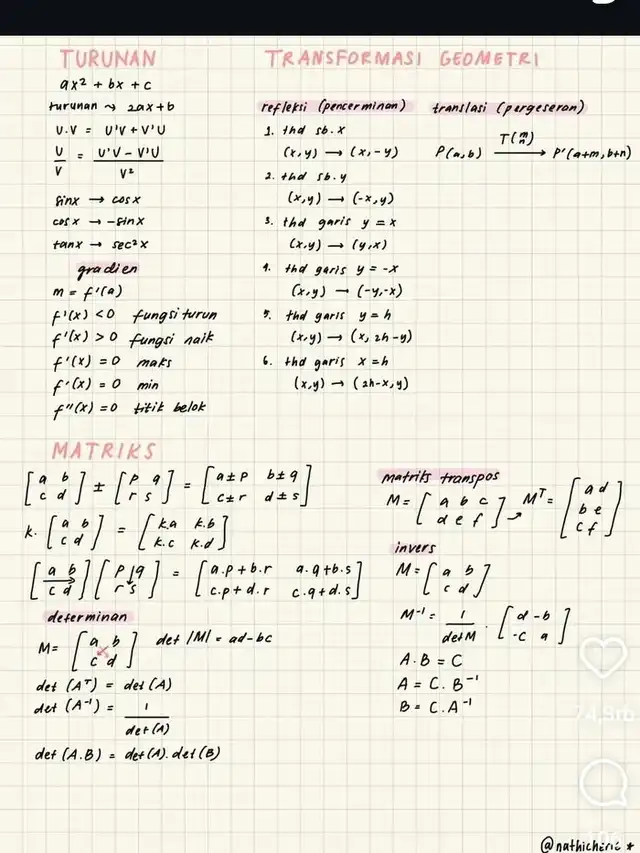 TURUNAN
ax² + bx + c
turunan ⤳ 2ax+b
U.V = U'V + V'U
U/V = (U'V - V'U)/V²
sinx → cosx
cosx → -sinx
tanx → sec²x
gradien
m = f'(a)
f'(x) < 0 fungsi turun
f'(x) > 0 fungsi naik
f'(x) = 0 maks
f'(x) = 0 min
f"(x) = 0 titik belok
TRANSFORMASI GEOMETRI
refleksi (pencerminan)
1. thd sb.x
(x,y) → (x,-y)
2. thd sb.y
(x,y) → (-x,y)
3. thd garis y = x
(x,y) → (y,x)
4. thd garis y = -x
(x,y) → (-y,-x)
5. thd garis y = h
(x,y) → (x, 2h-y)
6. thd garis x = h
(x,y) → (2h-x, y)
translasi (pergeseran)
P(a,b) T(m n) → P'(a+m, b+n)
MATRIKS
[a b; c d] ± [p q; r s] = [a±p b±q; c±r d±s]
k. [a b; c d] = [k.a k.b; k.c k.d]
[a b; c d] [p q; r s] = [a.p+b.r a.q+b.s; c.p+d.r c.q+d.s]
determinan
M = [a b; c d] det |M| = ad-bc
det (Aᵀ) = det (A)
det (A⁻¹) = 1/det(A)
det (A.B) = det(A). det(B)
matriks transpos
M = [a b c; d e f] → Mᵀ = [a d; b e; c f]
invers
M = [a b; c d]
M⁻¹ = 1/det M . [d -b; -c a]
A.B = C
A = C. B⁻¹
B = C. A⁻¹
74,5rb
106
@nathicherie ★